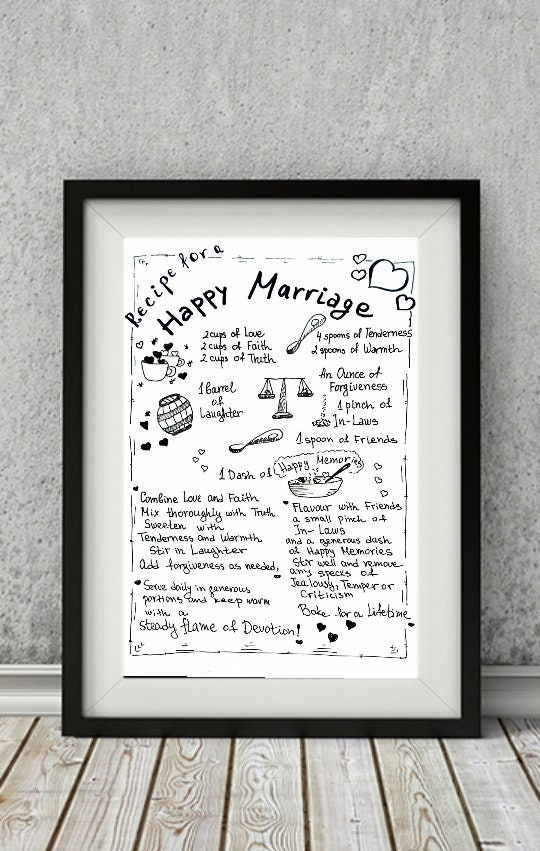 Recipe for a
Happy Marriage
2 cups of Love
2 cups of Faith
2 cups of Truth
4 spoons of Tenderness
2 spoons of Warmth
1 barrel
of
Laughter
An Ounce of
Forgiveness
1 pinch of
In-Laws
1 spoon of Friends
1 Dash of Happy Memories
Combine Love and Faith
Mix thoroughly with Truth
Sweeten with
Tenderness and Warmth
Stir in Laughter
Add forgiveness as needed,
Flavour with Friends
a small pinch of
In-Laws
and a generous dash
of Happy Memories
Stir well and remove
any specks of
Jealousy, Temper or
Criticism
Serve daily in generous
portions and keep warm
with a
steady flame of Devotion!
Bake for a Lifetime